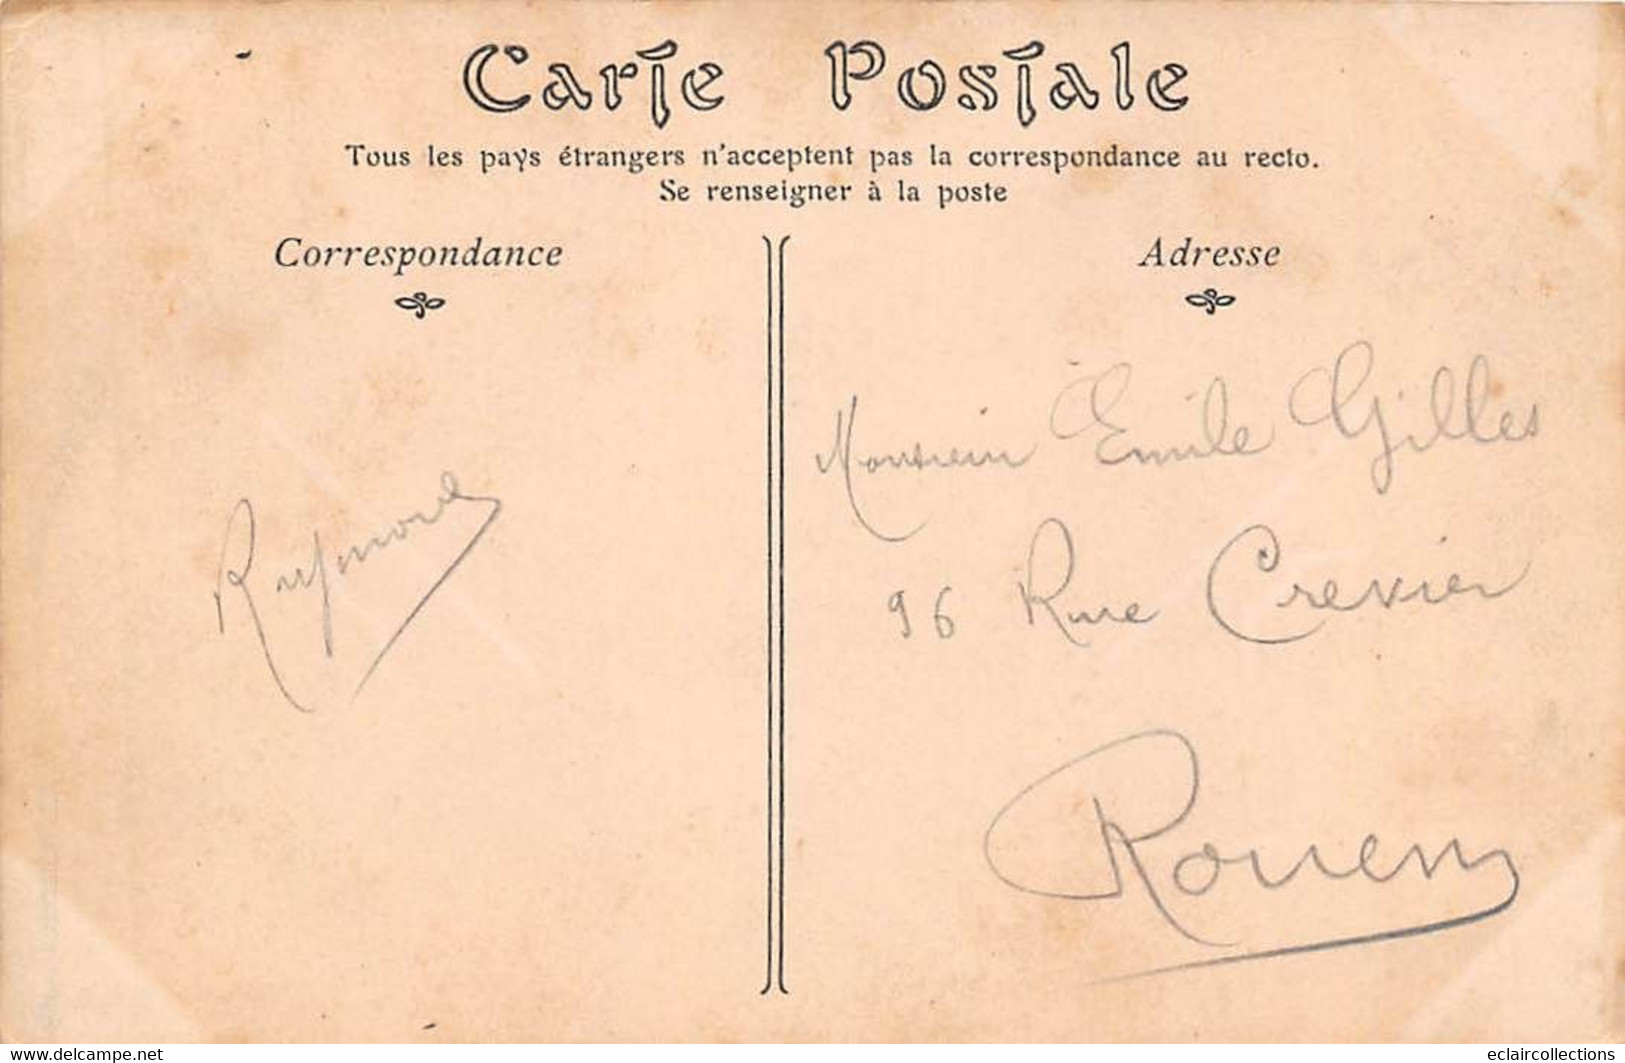 Carte Postale
Tous les pays étrangers n'acceptent pas la correspondance au recto.
Se renseigner à la poste
Correspondance
Adresse
Raymond
Monsieur Emile Gilles
96 Rue Crevier
Rouen
www.delcampe.net
eclaircollections